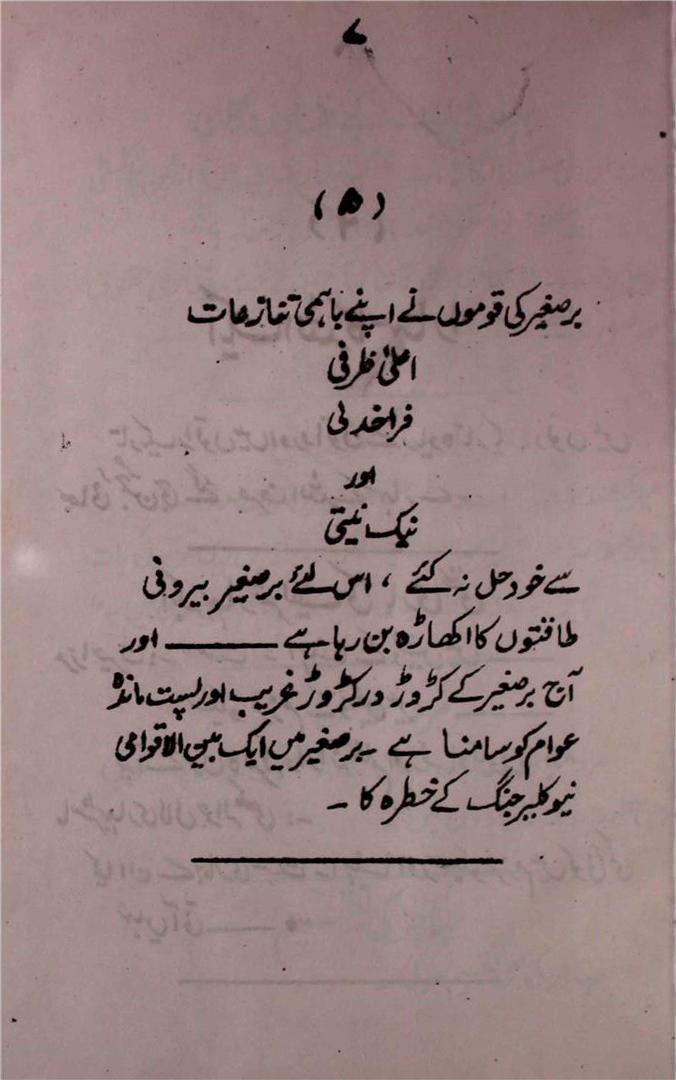 ۷
(۵)
برصغیر کی قوموں نے اپنے باہمی تنازعات
اعلیٰ ظرفی
فراخدلی
اور
نیک نیتی
سے خود حل نہ کئے ، اس لئے برصغیر بیرونی
طاقتوں کا اکھاڑہ بن رہا ہے ـــــــــ اور
آج برصغیر کے کروڑ در کروڑ غریب اور پست ماندہ
عوام کو سامنا ہے ۔ برصغیر میں ایک بین الاقوامی
نیو کلیر جنگ کے خطرہ کا ۔